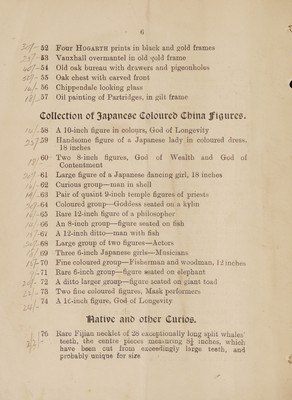 6
52 Four HOGARTH prints in black and gold frames
53 Vauxhall overmantel in old gold frame
54 Old oak bureau with drawers and pigeonholes
55 Oak chest with carved front
56 Chippendale looking glass
57 Oil painting of Partridges, in gilt frame
Collection of Japanese Coloured China Figures.
58 A 10-inch figure in colours, God of Longevity
59 Handsome figure of a Japanese lady in coloured dress,
18 inches
60 Two 8-inch figures, God of Wealth and God of
Contentment
61 Large figure of a Japanese dancing girl, 18 inches
62 Curious group—man in shell
63 Pair of quaint 9-inch temple figures of priests
64 Coloured group—Goddess seated on a kylin
65 Rare 12-inch figure of a philosopher
66 An 8-inch group—figure seated on fish
67 A 12-inch ditto—man with fish
68 Large group of two figures—Actors
69 Three 6-inch Japanese girls—Musicians
70 Fine coloured group—Fisherman and woodman, 12 inches
71 Rare 6-inch group—figure seated on elephant
72 A ditto larger group—figure seated on giant toad
73 Two fine coloured figures, Mask performers
74 A 16-inch figure, God of Longevity
Native and other Curios.
75 Rare Fijian necklet of 28 exceptionally long split whales'
teeth, the centre pieces measuring 8½ inches, which
have been cut from exceedingly large teeth, and
probably unique for size